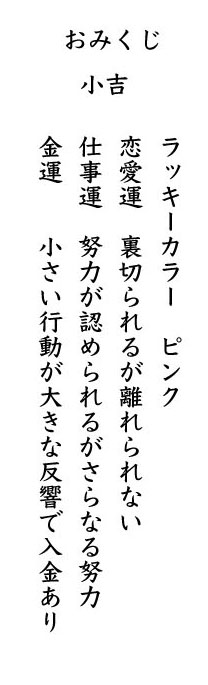 おみくじ
小吉
ラッキーカラー　ピンク
恋愛運　裏切られるが離れられない
仕事運　努力が認められるがさらなる努力
金運　小さい行動が大きな反響で入金あり